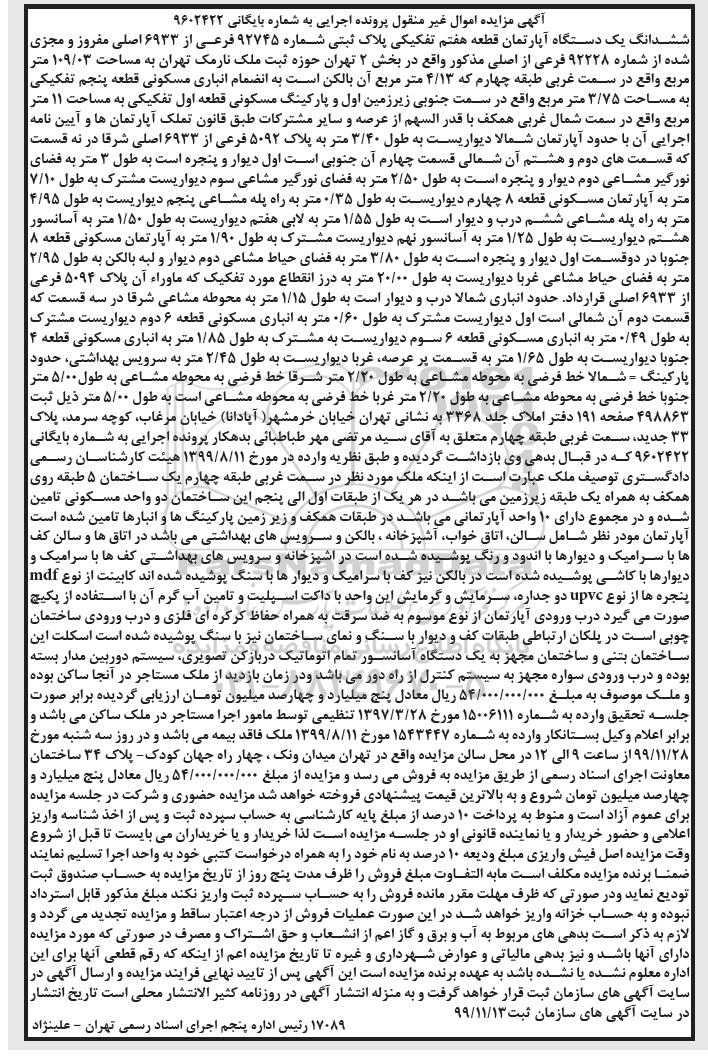 آگهی مزایده اموال غیر منقول پرونده اجرایی به شماره بایگانی ۹۶۰۲۴۲۲
ششدانگ یک دستگاه آپارتمان قطعه هفتم تفکیکی پلاک ثبتی شماره ۹۲۷۴۵ فرعی از ۶۹۳۳ اصلی مفروز و مجزی
شده از شماره ۹۲۲۲۸ فرعی از اصلی مذکور واقع در بخش ۲ تهران حوزه ثبت ملک نارمک تهران به مساحت ۱۰۹/۰۳ متر
مربع واقع در سمت غربی طبقه چهارم که ۴/۱۳ متر مربع آن بالکن است به انضمام انباری مسکونی قطعه پنجم تفکیکی
به مساحت ۳/۷۵ متر مربع واقع در سمت جنوبی زیرزمین اول و پارکینگ مسکونی قطعه اول تفکیکی به مساحت ۱۱ متر
مربع واقع در سمت شمال غربی همکف با قدر السهم از عرصه و سایر مشترکات طبق قانون تملک آپارتمان ها و آیین نامه
اجرایی آن با حدود آپارتمان شمالا دیواریست به طول ۳/۴۰ متر به پلاک ۵۰۹۲ فرعی از ۶۹۳۳ اصلی شرقا در نه قسمت
که قسمت های دوم و هشتم آن شمالی قسمت چهارم آن جنوبی است اول دیوار و پنجره است به طول ۳ متر به فضای
نورگیر مشاعی دوم دیوار و پنجره است به طول ۲/۵۰ متر به فضای نورگیر مشاعی سوم دیواریست مشترک به طول ۷/۱۰
متر به آپارتمان مسکونی قطعه ۸ چهارم دیواریست به طول ۰/۳۵ متر به راه پله مشاعی پنجم دیواریست به طول ۴/۹۵
متر به راه پله مشاعی ششم درب و دیوار است به طول ۱/۵۵ متر به لابی هفتم دیواریست به طول ۱/۵۰ متر به آسانسور
هشتم دیواریست به طول ۱/۲۵ متر به آسانسور نهم دیواریست مشترک به طول ۱/۹۰ متر به آپارتمان مسکونی قطعه ۸
جنوبا در دوقسمت اول دیوار و پنجره است به طول ۳/۸۰ متر به فضای حیاط مشاعی دوم دیوار و لبه بالکن به طول ۲/۹۵
متر به فضای حیاط مشاعی غربا دیواریست به طول ۲۰/۰۰ متر به درز انقطاع مورد تفکیک که ماوراء آن پلاک ۵۰۹۴ فرعی
از ۶۹۳۳ اصلی قرارداد. حدود انباری شمالا درب و دیوار است به طول ۱/۱۵ متر به محوطه مشاعی شرقا در سه قسمت که
قسمت دوم آن شمالی است اول دیواریست مشترک به طول ۰/۶۰ متر به انباری مسکونی قطعه ۶ دوم دیواریست مشترک
به طول ۰/۴۹ متر به انباری مسکونی قطعه ۶ سوم دیواریست به مشترک به طول ۱/۸۵ متر به انباری مسکونی قطعه ۴
جنوبا دیواریست به طول ۱/۶۵ متر به قسمت پر عرصه، غربا دیواریست به طول ۲/۴۵ متر به سرویس بهداشتی، حدود
پارکینگ = شمالا خط فرضی به محوطه مشاعی به طول ۲/۲۰ متر شرقا خط فرضی به محوطه مشاعی به طول ۵/۰۰ متر
جنوبا خط فرضی به محوطه مشاعی به طول ۲/۲۰ متر غربا خط فرضی به محوطه مشاعی است به طول ۵/۰۰ متر ذیل ثبت
۴۹۸۸۶۳ صفحه ۱۹۱ دفتر املاک جلد ۳۳۶۸ به نشانی تهران خیابان خرمشهر( آپادانا) خیابان مرغاب، کوچه سرمد، پلاک
۳۳ جدید، سمت غربی طبقه چهارم متعلق به آقای سید مرتضی مهر طباطبائی بدهکار پرونده اجرایی به شماره بایگانی
۹۶۰۲۴۲۲ که در قبال بدهی وی بازداشت گردیده و طبق نظریه وارده در مورخ ۱۳۹۹/۸/۱۱ هیئت کارشناسان رسمی
دادگستری توصیف ملک عبارت است از اینکه ملک مورد نظر در سمت غربی طبقه چهارم یک ساختمان ۵ طبقه روی
همکف به همراه یک طبقه زیرزمین می باشد در هر یک از طبقات اول الی پنجم این ساختمان دو واحد مسکونی تامین
شده و در مجموع دارای ۱۰ واحد آپارتمانی می باشد در طبقات همکف و زیر زمین پارکینگ ها و انبارها تامین شده است
آپارتمان مودر نظر شامل سالن، اتاق خواب، آشپزخانه ، بالکن و سرویس های بهداشتی می باشد در اتاق ها و سالن کف
ها با سرامیک و دیوارها با اندود و رنگ پوشیده شده است در آشپزخانه و سرویس های بهداشتی کف ها با سرامیک و
دیوارها با کاشی پوشیده شده است در بالکن نیز کف با سرامیک و دیوار ها با سنگ پوشیده شده اند کابینت از نوع mdf
پنجره ها از نوع upvc دو جداره، سرمایش و گرمایش این واحد با داکت اسپلیت و تامین آب گرم آن با استفاده از پکیچ
صورت می گیرد درب ورودی آپارتمان از نوع موسوم به ضد سرقت به همراه حفاظ کرکره ای فلزی و درب ورودی ساختمان
چوبی است در پلکان ارتباطی طبقات کف و دیوار با سنگ و نمای ساختمان نیز با سنگ پوشیده شده است اسکلت این
ساختمان بتنی و ساختمان مجهز به یک دستگاه آسانسور تمام اتوماتیک دربازکن تصویری، سیستم دوربین مدار بسته
بوده و درب ورودی سواره مجهز به سیستم کنترل از راه دور می باشد ودر زمان بازدید از ملک مستاجر در آنجا ساکن بوده
و ملک موصوف به مبلغ ۵۴/۰۰۰/۰۰۰/۰۰۰ ریال معادل پنج میلیارد و چهارصد میلیون تومان ارزیابی گردیده برابر صورت
جلسه تحقیق وارده به شماره ۱۵۰۰۶۱۱۱ مورخ ۱۳۹۷/۳/۲۸ تنظیمی توسط مامور اجرا مستاجر در ملک ساکن می باشد و
برابر اعلام وکیل بستانکار وارده به شماره ۱۵۴۳۴۴۷ مورخ ۱۳۹۹/۸/۱۱ ملک فاقد بیمه می باشد و در روز سه شنبه مورخ
۹۹/۱۱/۲۸ از ساعت ۹ الی ۱۲ در محل سالن مزایده واقع در تهران میدان ونک ، چهار راه جهان کودک- پلاک ۳۴ ساختمان
معاونت اجرای اسناد رسمی از طریق مزایده به فروش می رسد و مزایده از مبلغ ۵۴/۰۰۰/۰۰۰/۰۰۰ ریال معادل پنج میلیارد و
چهارصد میلیون تومان شروع و به بالاترین قیمت پیشنهادی فروخته خواهد شد مزایده حضوری و شرکت در جلسه مزایده
برای عموم آزاد است و منوط به پرداخت ۱۰ درصد از مبلغ پایه کارشناسی به حساب سپرده ثبت و پس از اخذ شناسه واریز
اعلامی و حضور خریدار و یا نماینده قانونی او در جلسه مزایده است لذا خریدار و یا خریداران می بایست تا قبل از شروع
وقت مزایده اصل فیش واریزی مبلغ ودیعه ۱۰ درصد به نام خود را به همراه درخواست کتبی خود به واحد اجرا تسلیم نمایند
ضمنا برنده مزایده مکلف است مابه التفاوت مبلغ فروش را ظرف مدت پنج روز از تاریخ مزایده به حساب صندوق ثبت
تودیع نماید ودر صورتی که ظرف مهلت مقرر مانده فروش را به حساب سپرده ثبت واریز نکند مبلغ مذکور قابل استرداد
نبوده و به حساب خزانه واریز خواهد شد در این صورت عملیات فروش از درجه اعتبار ساقط و مزایده تجدید می گردد و
لازم به ذکر است بدهی های مربوط به آب و برق و گاز اعم از انشعاب و حق اشتراک و مصرف در صورتی که مورد مزایده
دارای آنها باشد و نیز بدهی مالیاتی و عوارض شهرداری و غیره تا تاریخ مزایده اعم از اینکه که رقم قطعی آنها برای این
اداره معلوم نشده یا نشده باشد به عهده برنده مزایده است این آگهی پس از تایید نهایی فرایند مزایده و ارسال آگهی در
سایت آگهی های سازمان ثبت قرار خواهد گرفت و به منزله انتشار آگهی در روزنامه کثیر الانتشار محلی است تاریخ انتشار
در سایت آگهی های سازمان ثبت۹۹/۱۱/۱۳
۱۷۰۸۹ رئیس اداره پنجم اجرای اسناد رسمی تهران - علینژاد